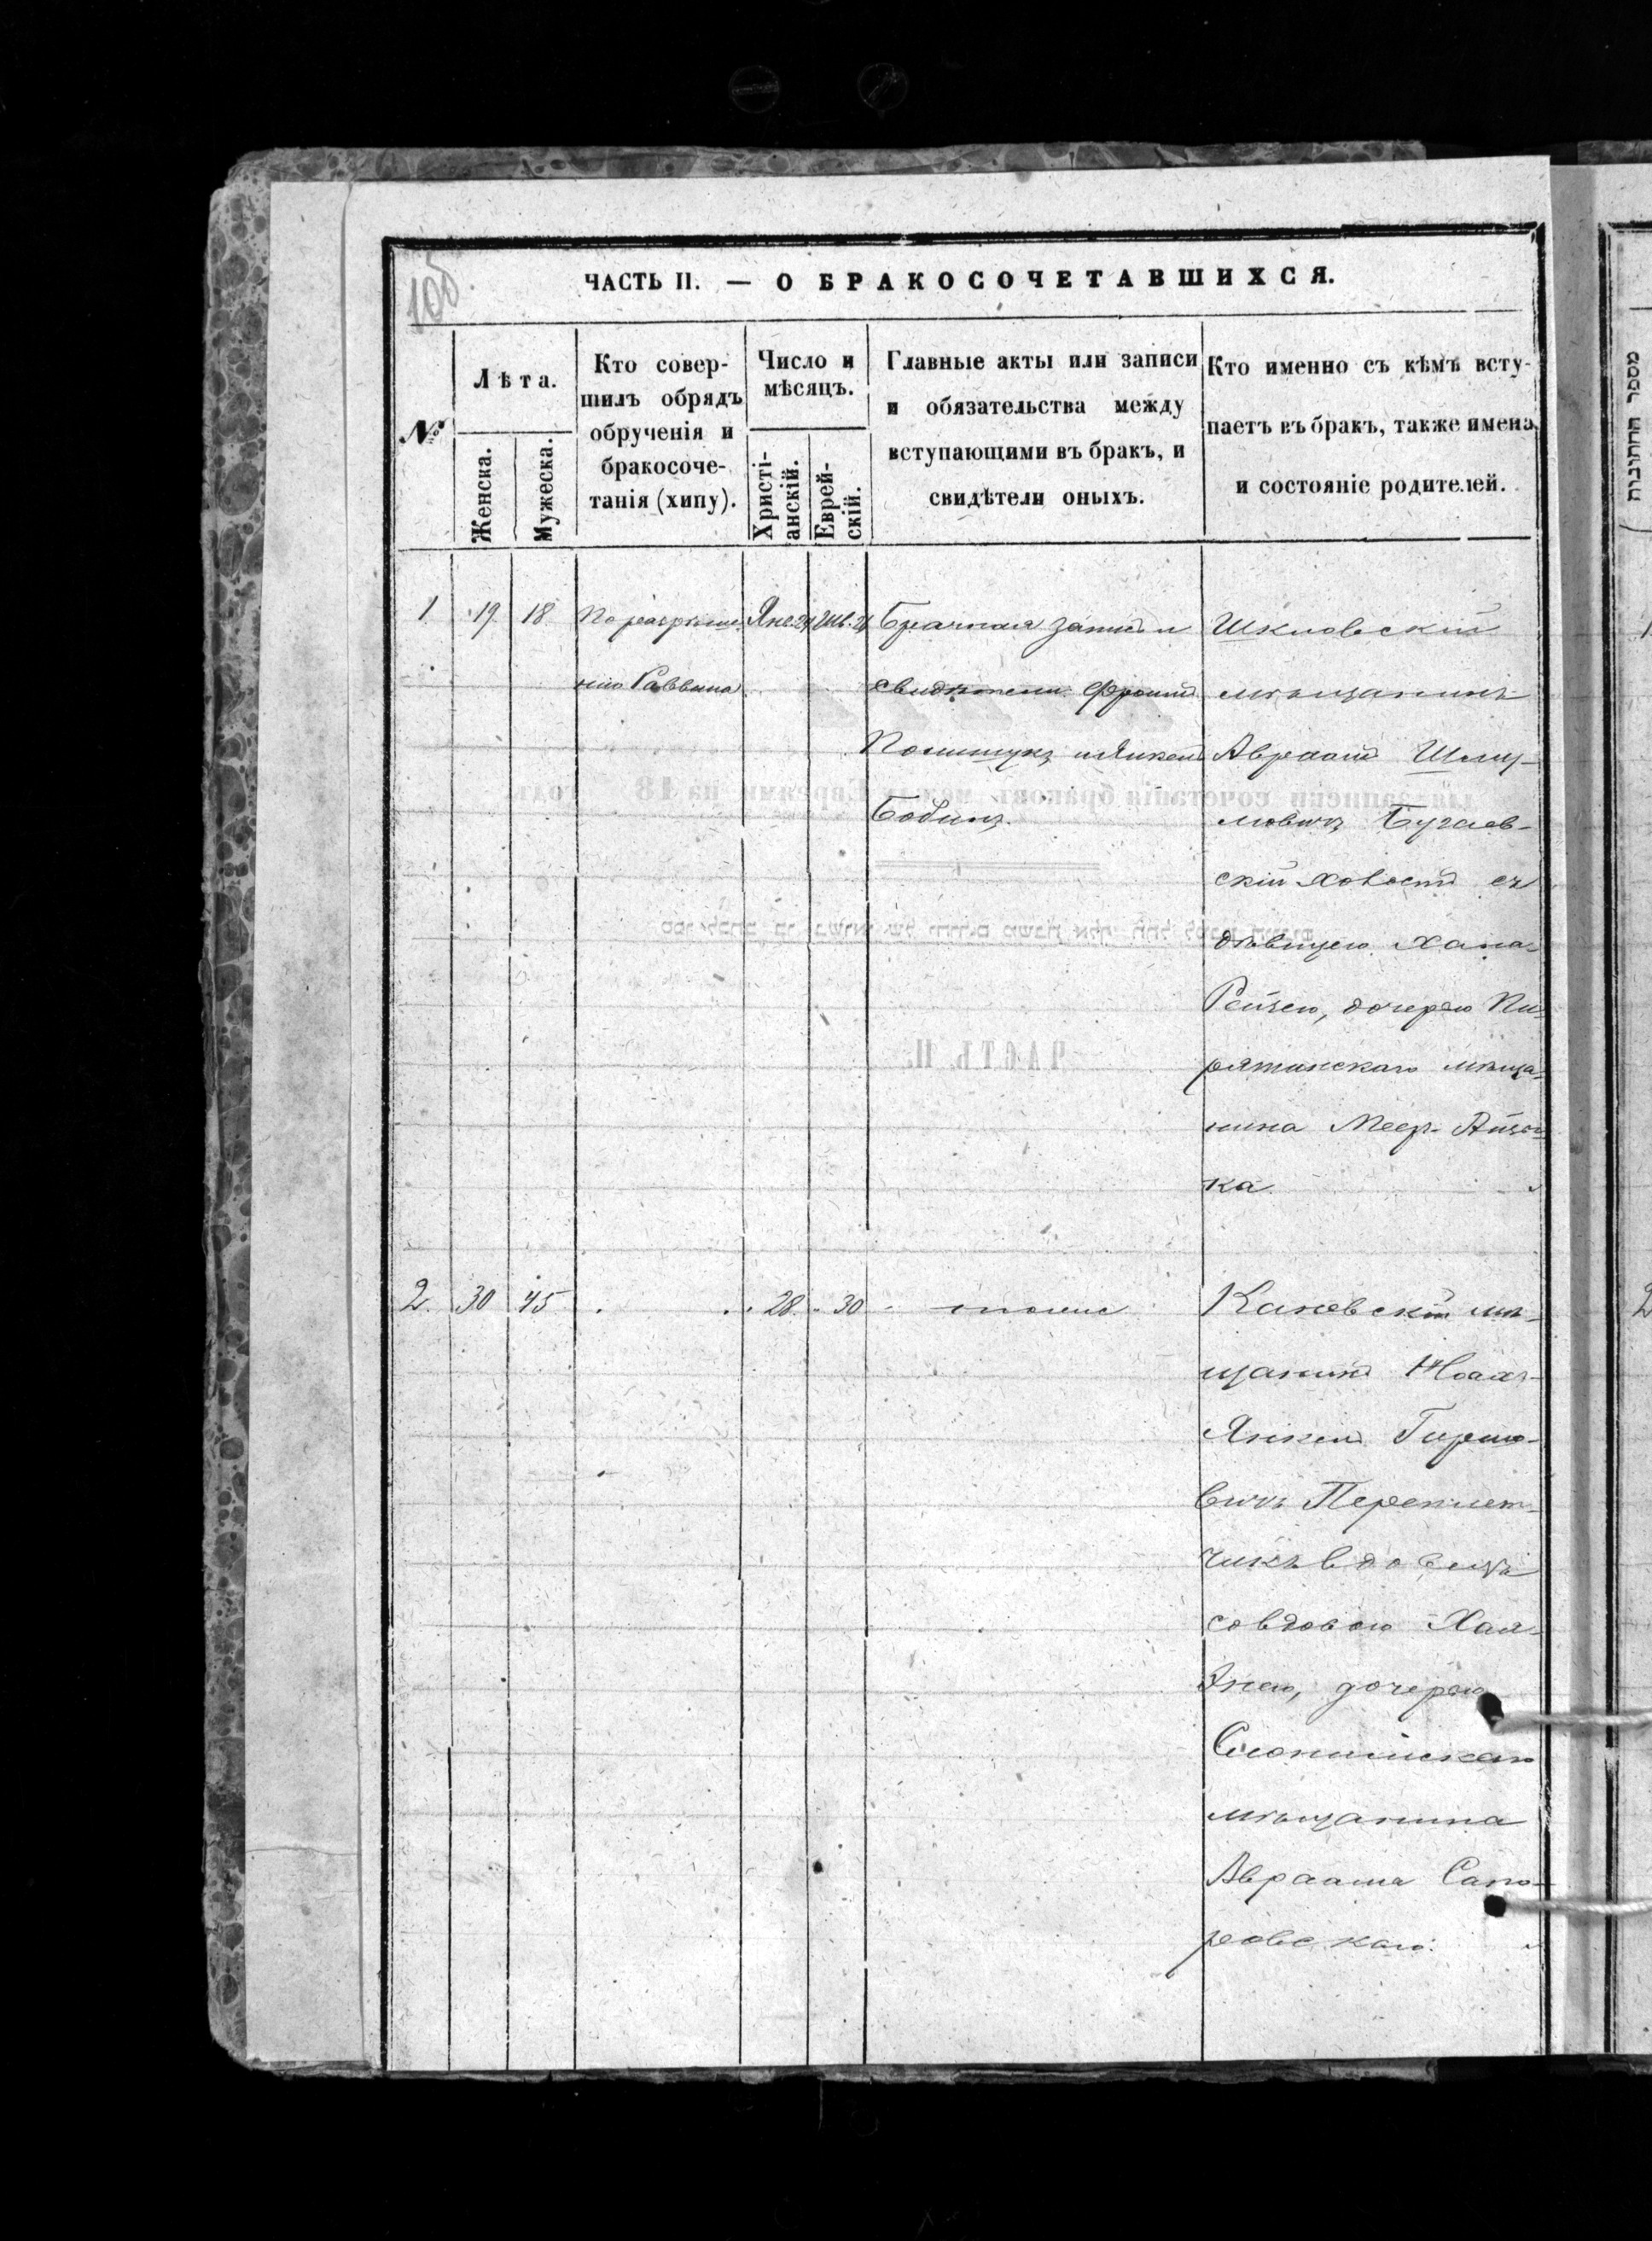 105
ЧАСТЬ II. — О БРАКОСОЧЕТАВШИХСЯ.
№
Лѣта.
Женска.
Мужеска.
Кто совер-
шилъ обрядъ
обрученія и
бракосоче-
танія (хипу).
Число и
мѣсяцъ.
Христі-
анскій.
Еврей-
скій.
Главные акты или записи
и обязательства между
вступающими въ бракъ, и
свидѣтели оныхъ.
Кто именно съ кѣмъ всту-
паетъ въ бракъ, также имена
и состояніе родителей.
1
19
18
По разрѣше-
нію Раввина
Янв.
Шв.
Брачная запись и
свидѣтели
Полищукъ и
Бобинъ.
Шкловскій
мѣщанинъ
Авраамъ Шму-
левичъ Бугаев-
скій холостъ съ
дѣвицею Хана-
Рейзею, дочерью Пи-
рятинскаго мѣща-
нина Меер-
ка.
2.
30
45
28.
30
тоже
Каневскій мѣ-
щанинъ
Янкель Гершо-
вичъ Переплет-
чикъ вдовецъ
со вдовою Хая-
дочерью
Слонимскаго
мѣщанина
Авраама Сапо-
ровскаго.
מספר החתונות
1
2